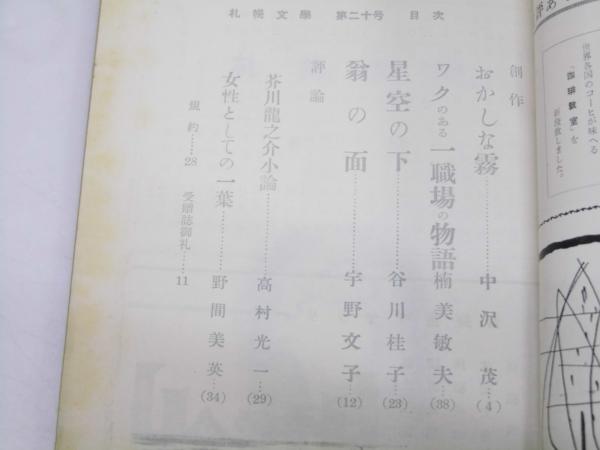 札幌文學 第二十号 目次
創作
おかしな霧……中沢茂(4)
ワクのある一職場の物語 楠美敏夫(38)
星空の下……谷川桂子(23)
翁の面……宇野文子(12)
評論
芥川龍之介小論……高村光一…(29)
女性としての一葉……野間美英…(34)
規約……28 受贈誌御礼……11
世界各国のコーヒが味へる
「珈琲教室」を
新設致しました。